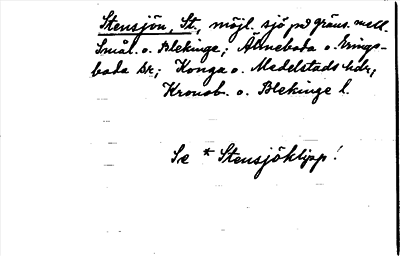 Stensjön, St, möjl. sjö på gräns. mell.
Smål. o. Blekinge; Älmeboda o. Tvings-
boda sn; Konga o. Medelstads hdr;
Kronob. o. Blekinge l.
Se * Stensjöklipp!